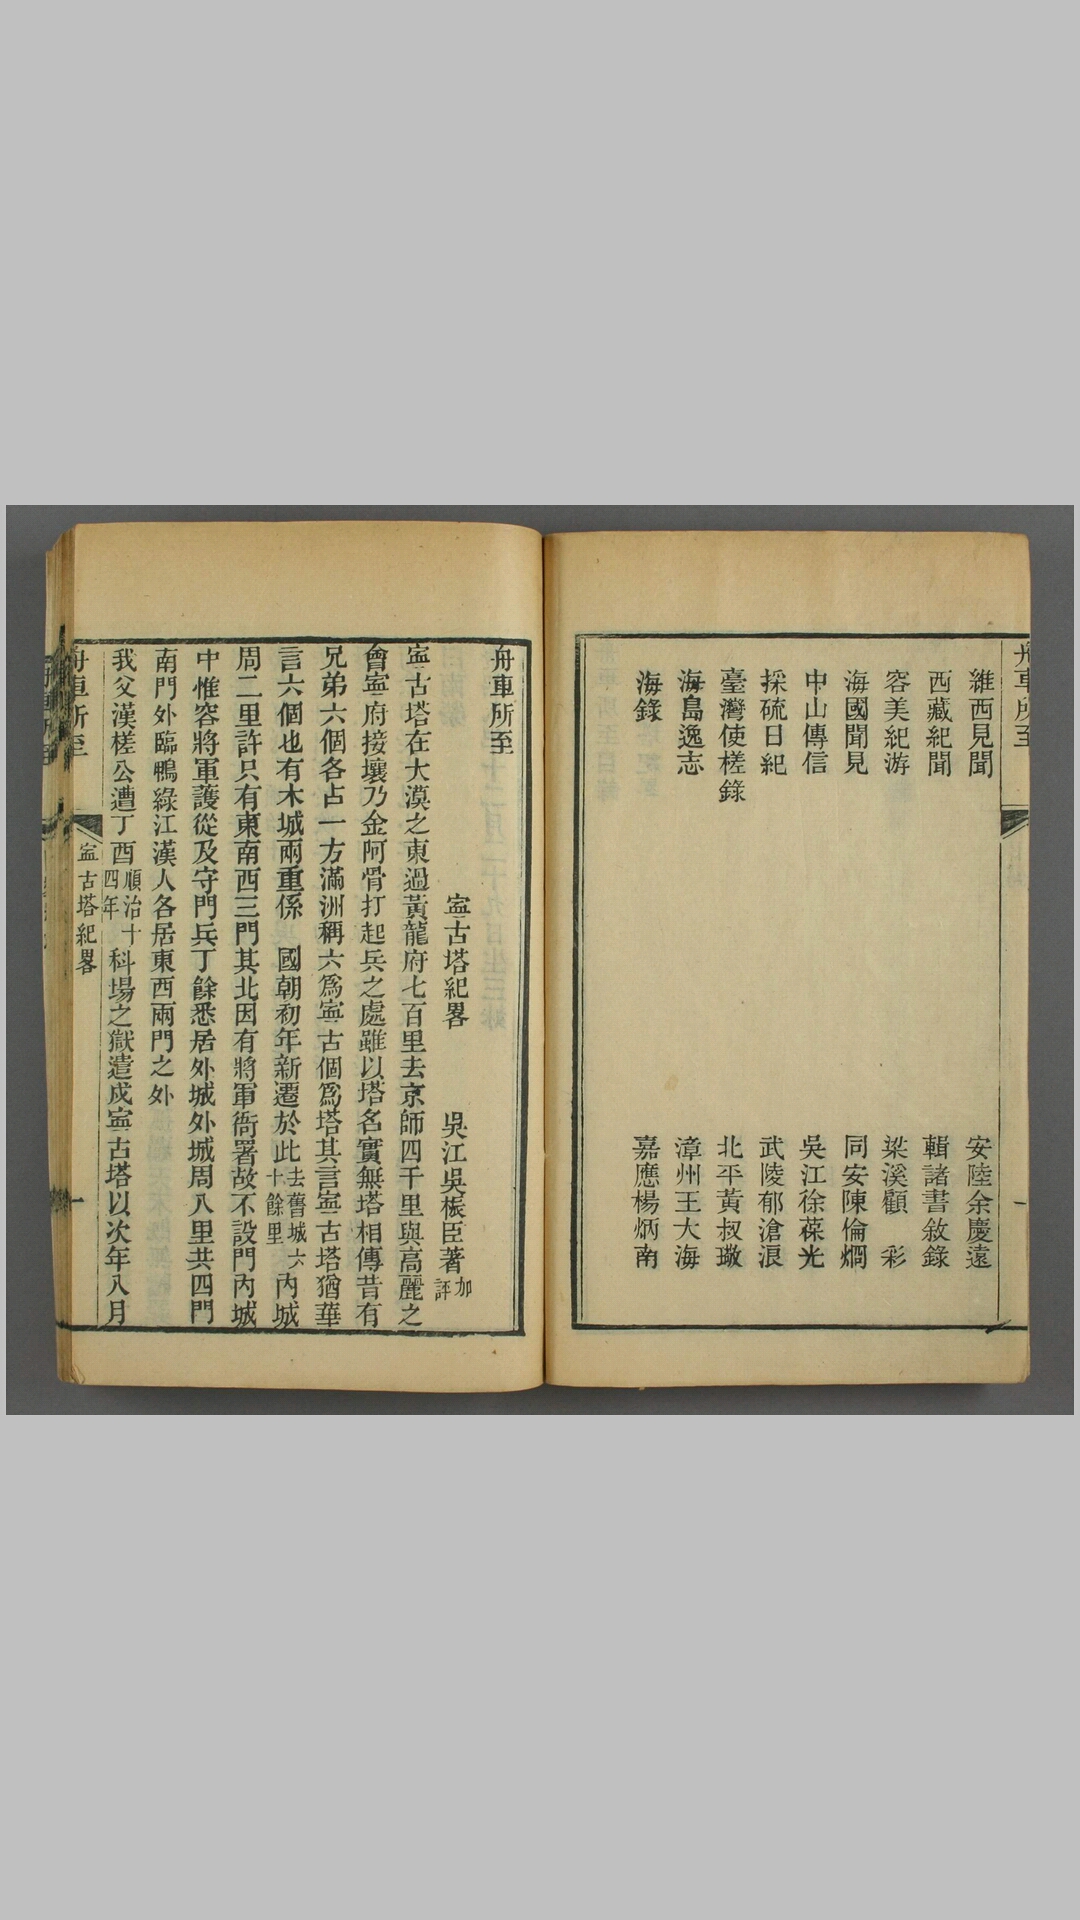 舟車所至
維西見聞　安陸余慶遠
西藏紀聞　輯諸書敘錄
容美紀游　梁溪顧　彩
海國聞見　同安陳倫烱
中山傳信　吳江徐葆光
採硫日紀　武陵郁滄浪
臺灣使槎錄　北平黃叔璥
海島逸志　漳州王大海
海錄　嘉應楊炳南
舟車所至
寍古塔紀畧　吳江吳桭臣著加評
寍古塔在大漠之東過黃龍府七百里去京師四千里與高麗之
會寍府接壤乃金阿骨打起兵之處雖以塔名實無塔相傳昔有
兄弟六個各占一方滿洲稱六爲寍古個爲塔其言寍古塔猶華
言六個也有木城兩重係　國朝初年新遷於此去舊城六十餘里內城
周二里許只有東南西三門其北因有將軍衙署故不設門內城
中惟容將軍護從及守門兵丁餘悉居外城外城周八里共四門
南門外臨鴨綠江漢人各居東西兩門之外
我父漢槎公遭丁酉順治十四年科場之獄遣戍寍古塔以次年八月
舟車所至　寍古塔紀畧　一